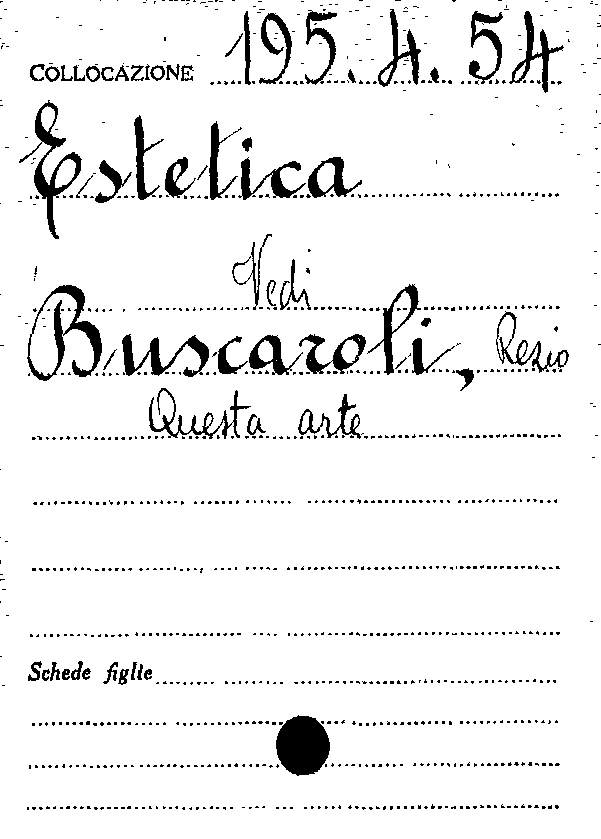 COLLOCAZIONE 195.4.54
Estetica
Vedi
Buscaroli, Rezio
Questa arte
Schede figlie